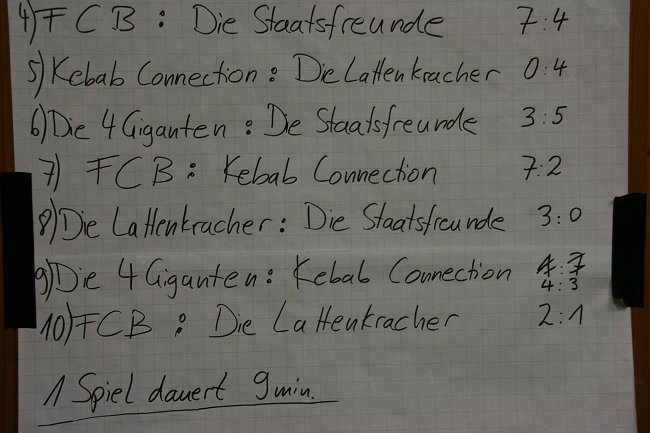 4) FCB : Die Staatsfreunde 7:4
5) Kebab Connection : Die Lattenkracher 0:4
6) Die 4 Giganten : De Staatsfreunde 3:5
7) FCB : Kebab Connection 7:2
8) Die Lattenkracher : Die Staatsfreunde 3:0
9) Die 4 Giganten : Kebab Connection
4:3
10) FCB : Die Lattenkracher 2:1
1 Spiel dauert 9 min.